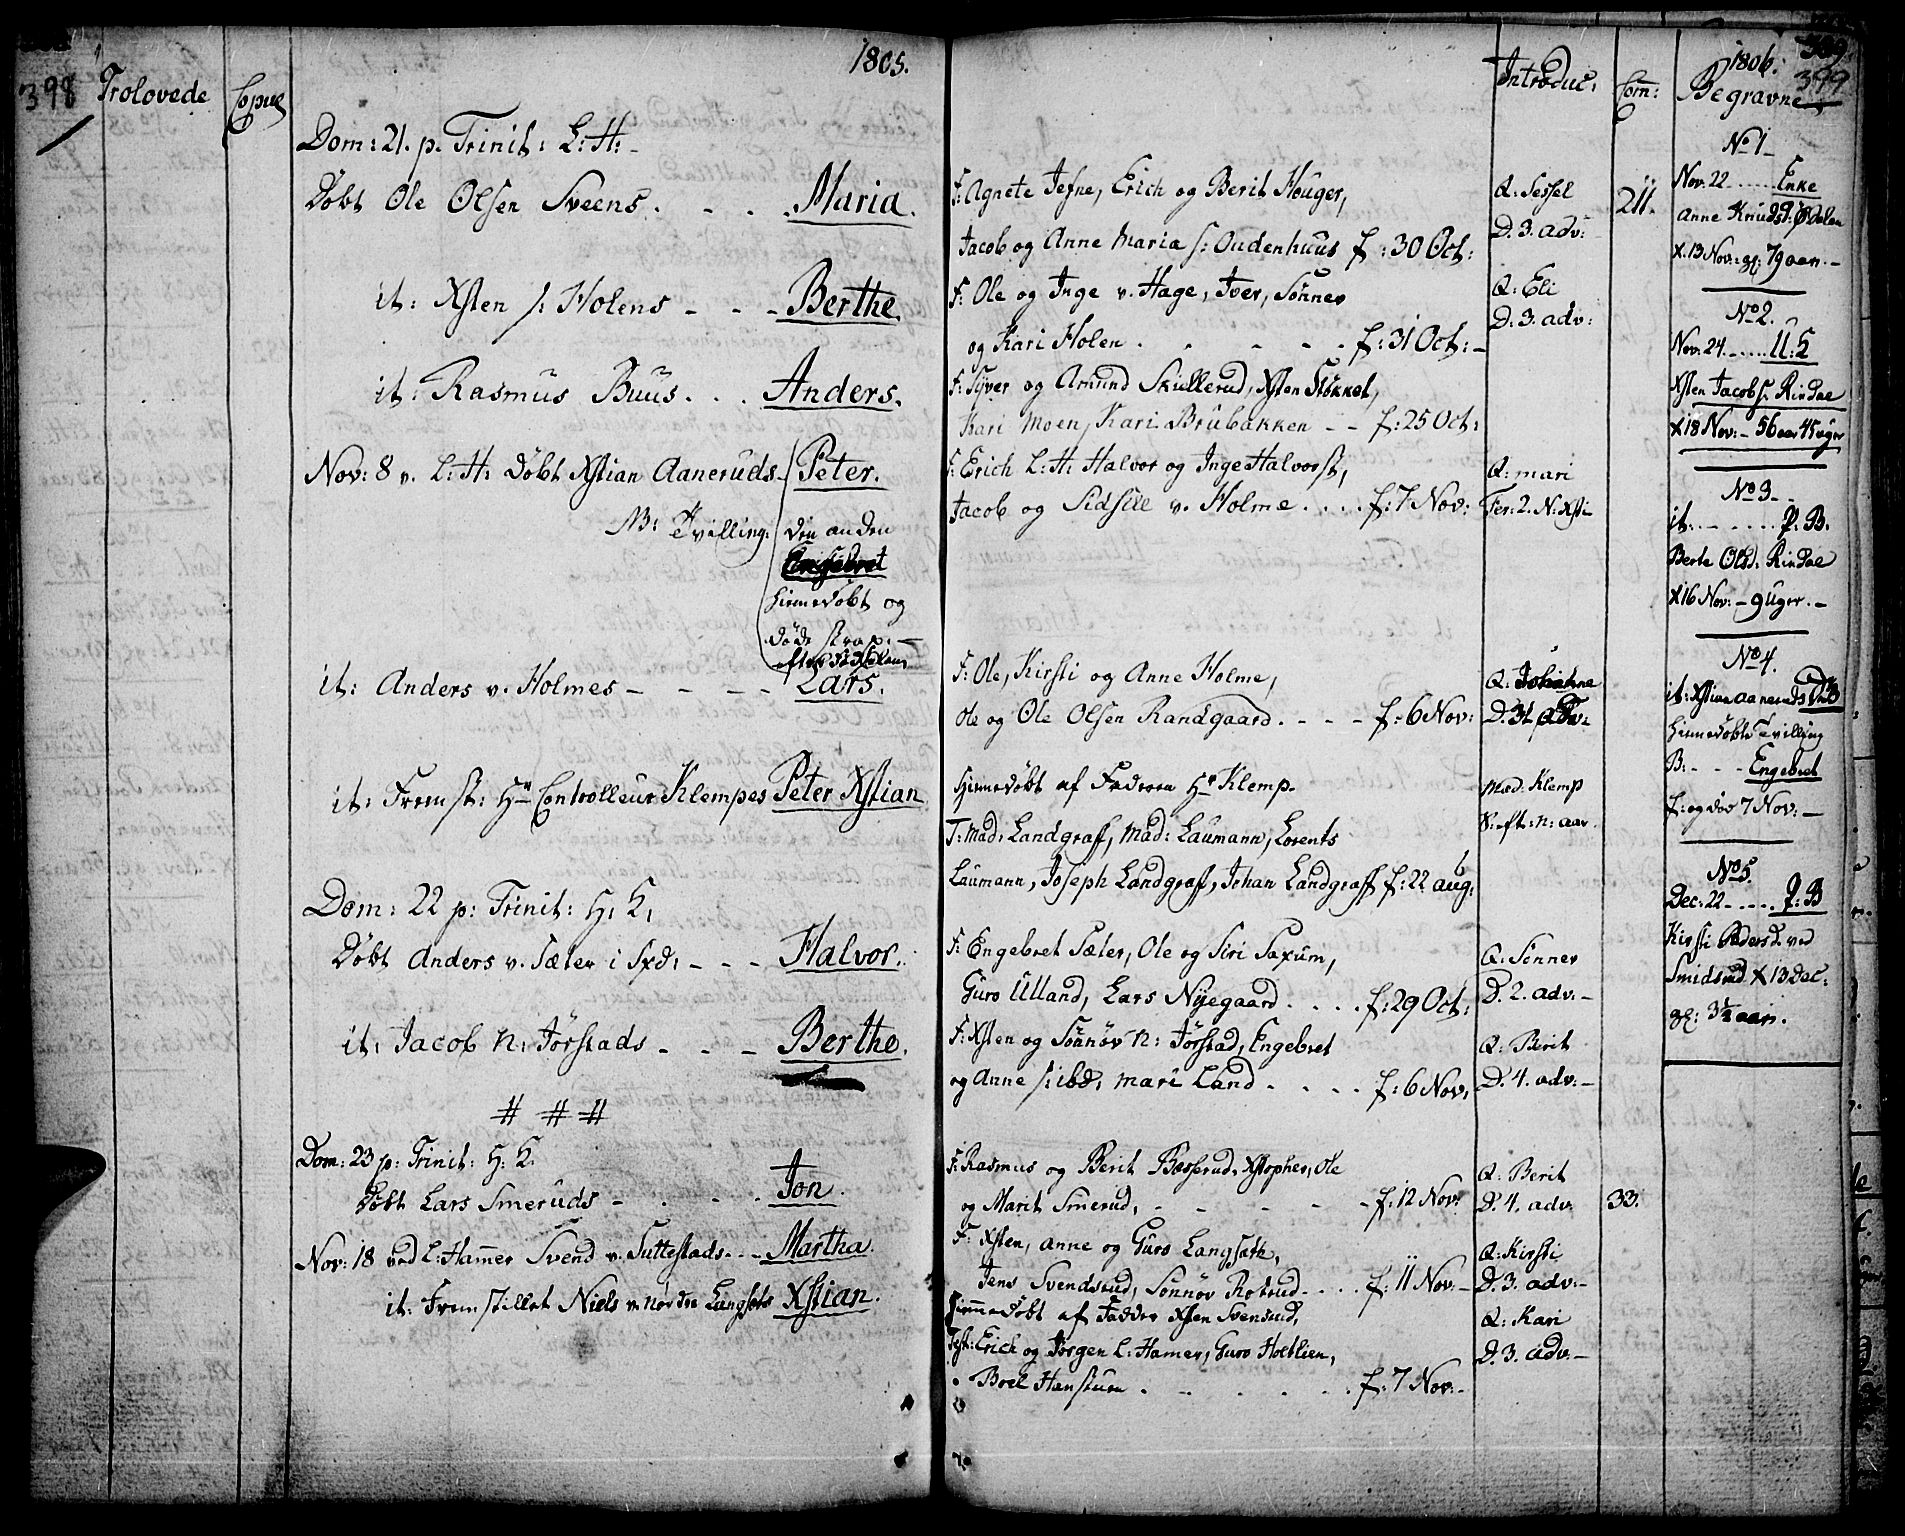 398
Trolovede
Copul
1805.
Dom: 21. p. Trinit: L: H:
Døbt Ole Olsen Sveens. - - . Maria.
it: Xsten s: Holens - - - Berthe.
it: Rasmus Buus. . . Anders.
Nov: 8 v. L: H: døbt Xstian Aaneruds - Peter.
NB: Tvilling: den anden
hiemedøbt og
døde strax
it: Anders v. Holmes - - - - Lars.
it: Fremst: Hr Controlleur Klempes Peter Xstian
Dom: 22 p: Trinit: H: K:
Døbt Anders v. Sæter i Sxd: - - - Halvor.
it: Jacob n: Jørstads - - - Berthe.
# # #
Dom: 23 p: Trinit: H: K.
Døbt Lars Smeruds - . . . Jon.
Nov: 18 ved L: Hammer Svend v. Suttestads - - - Martha.
it: Fremstillet Niels v. nordre Langsets Xstian.
F: Agnete Jefne, Erich og Berit Houger,
Jacob og Anne Maria s: Oudenhuus f: 30 Oct:
F: Ole og Inge v. Hage, Iver, Sønnev
og Kari Holen . . - - - f: 31 Oct: -
F: Syver og Amund Skillerud, Xsten Stokket,
Kari Moen, Kari Brubakken - - f: 25 Oct:
F: Erich L: H: Halvor og Inge Halvorst,
Jacob og Sidsele v. Holme . . . . f: 7 Nov:
F: Ole, Kirsti og Anne Holme,
Ole og Ole Olsen Randgaard. - - - f: 6 Nov:
Hiemedøbt af Faderen Hr Klemp.
T: Mad: Landgraff, Mad: Laumann, Lorents
Laumann, Joseph Landgraff, Johan Landgraff f: 22 aug:
F: Engebret Sæter, Ole og Siri Saxum,
Guro Ulland, Lars Nyegaard . . . . f: 29 Oct:
F: Xsten og Sønnøv n: Jørstad, Engebret
og Anne s: ibd: Mari Land . . . . f: 6 Nov:
F: Rasmus og Berit Bæsserud, Xstopher, Ole
og Marit Smerud, - - - - - f: 12 Nov:
F: Xsten, Anne og Guro Langsæth,
Jens Svendsrud, Sønnøv Rotrud . . . . f: 11 Nov: -
Hiemedøbt af Fadder Xsten Svensrud,
Test: Erich og Jørgen L: Hamer, Guro Holtlien,
Boel Hanstuen . . . . . . f: 7 Nov: -
Introduc:
Q: Sessel
D. 3. adv: -
Q: Eli
D. 3. adv:
Q: mari
Fer: 2. N: Xsti -
Q: Johanne
Mad. Klemp
S: eft: n: aar.
Q: Sønnev
D. 2. adv: -
Q: Berit
D. 4. adv: -
Q: Berit
D. 4. adv.
Q: Kirsti
D. 3. adv: -
Q: Kari
D. 3. adv: -
Com:
211.
33.
1806.
399
Begravne
No 1 -
Nov: 22 . . . . . . Enke
Anne Knudsd: Ødelen
X. 13 Nov: gl: 79 aar. -
No 2.
Nov: 24. . . . . . U: S
Xsten Jacobs: Rindal
X 18 Nov: - 56 aar 45 uger
No 3 -
it: - . . . . . P: B.
Berte Olsd: Rindal
X 16 Nov: - 9 Uger. -
No 4.
it: Xstian Aaneruds
hiemedøbte Tvilling
B: - - - Engebret
f: og død 7 Nov: -
No 5.
Dec: 22 - . . . . P: B
Kirsti Pedersd. ved
Smidsrud X 13 Dec:
gl: 3½ aar.